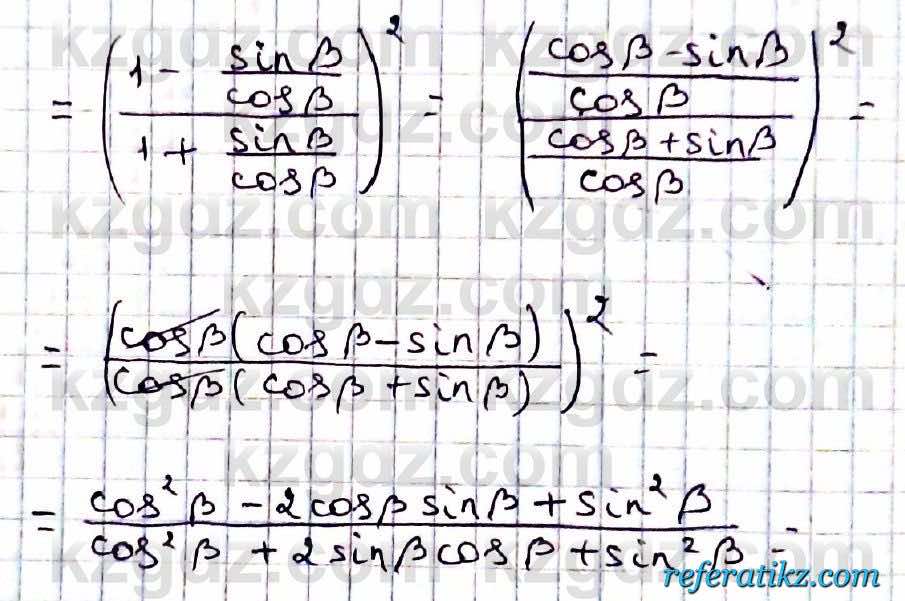 = ((1 - sinβ/cosβ)/(1 + sinβ/cosβ))² = (((cosβ - sinβ)/cosβ)/((cosβ + sinβ)/cosβ))² =
= ((cosβ(cosβ - sinβ))/(cosβ(cosβ + sinβ)))² =
= (cos²β - 2cosβ sinβ + sin²β)/(cos²β + 2sinβ cosβ + sin²β) =
kzgdz.com
referatikz.com